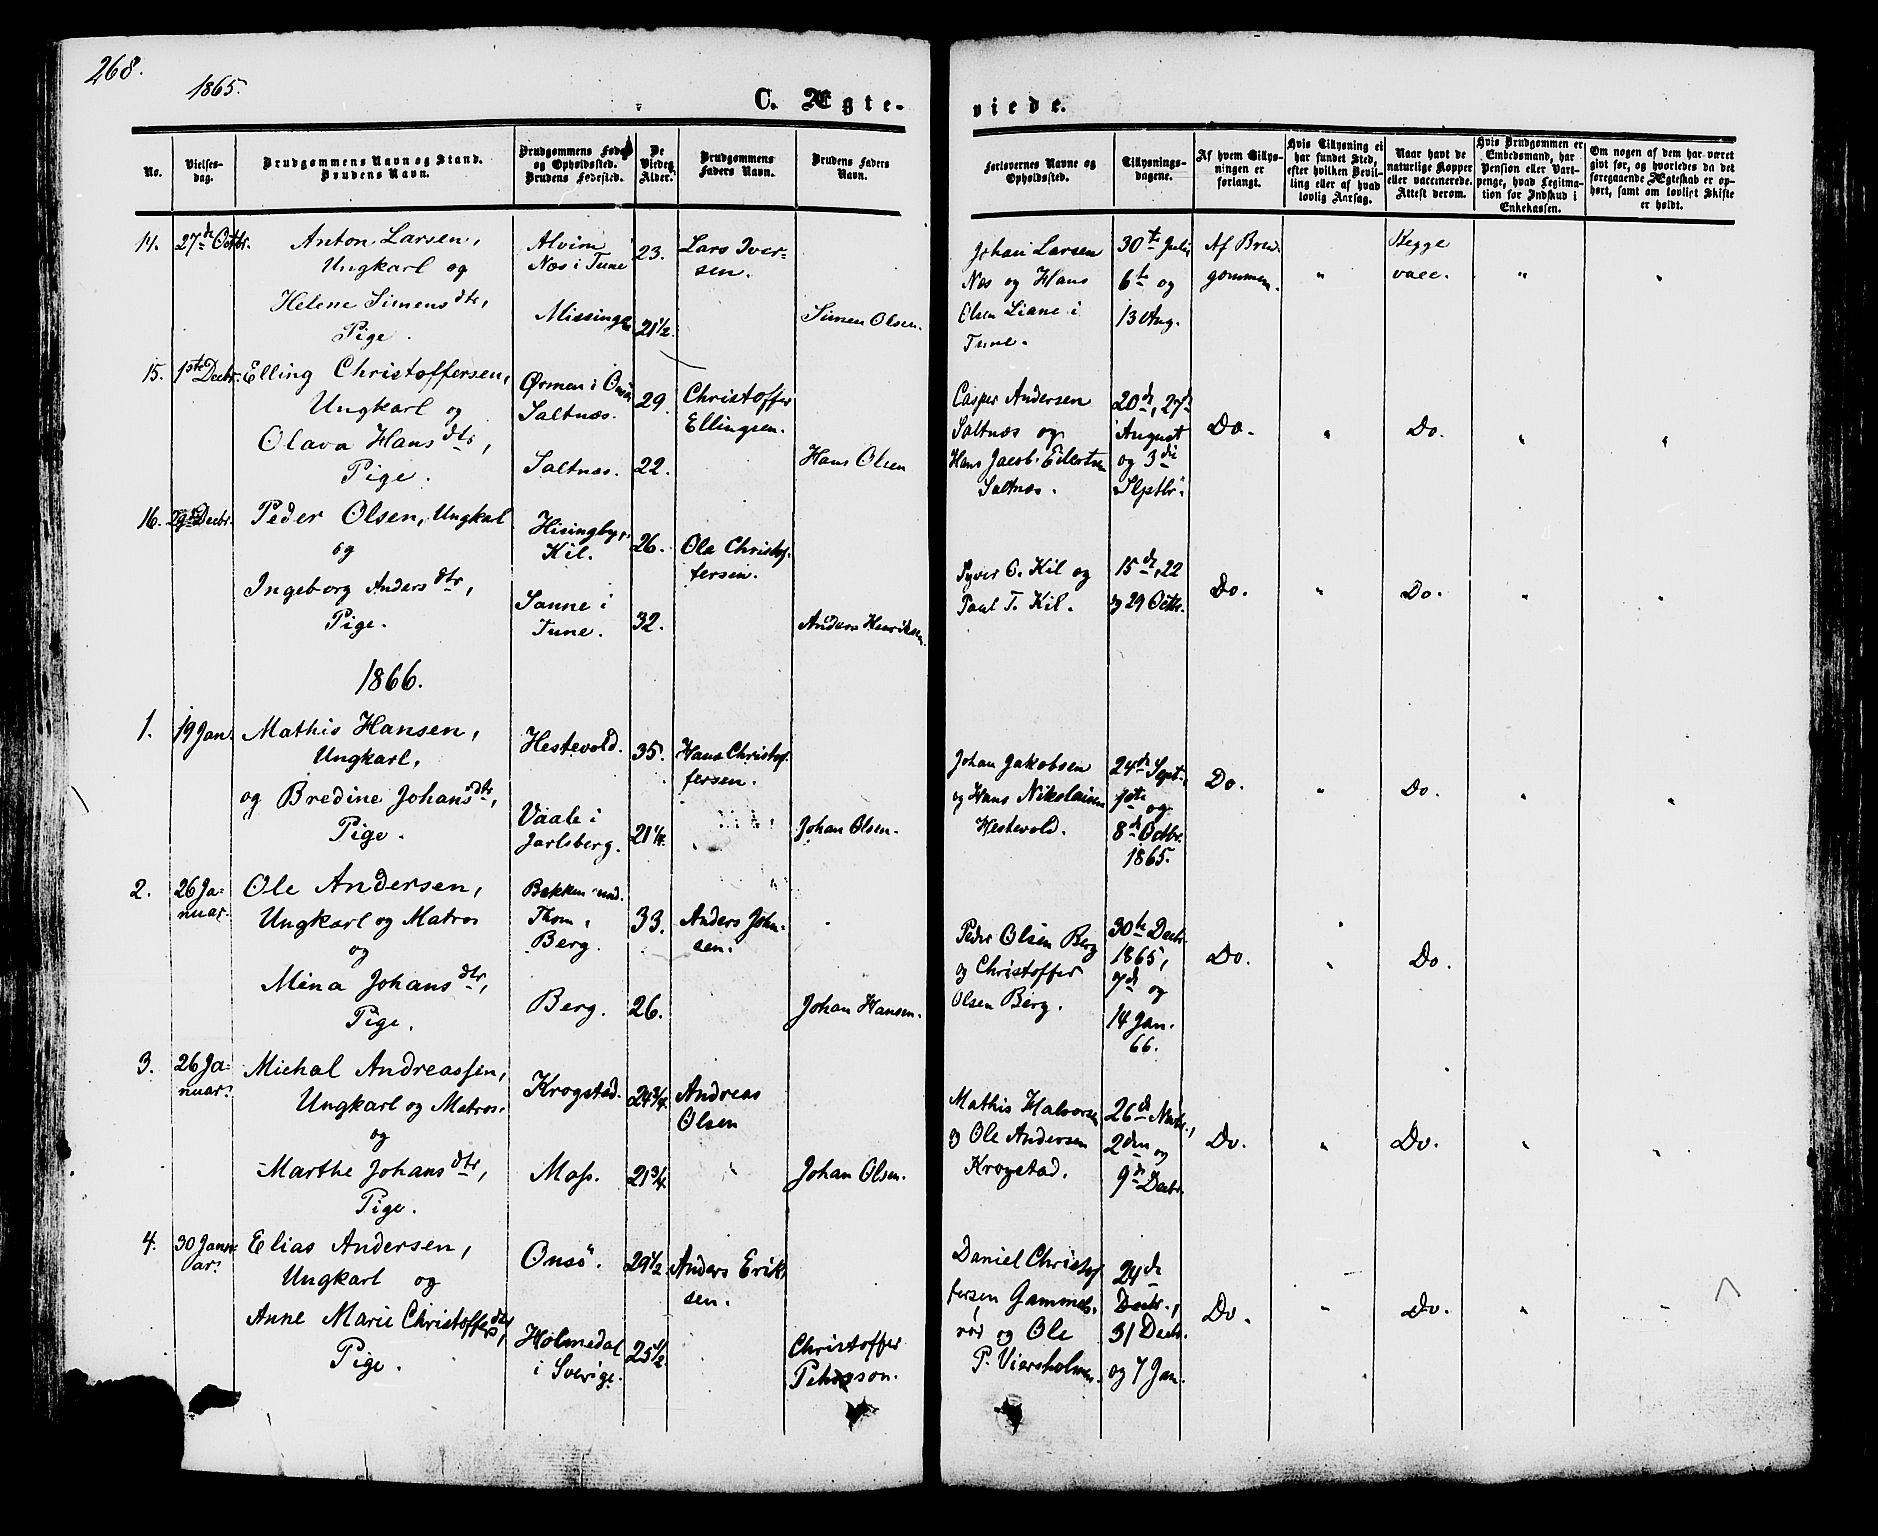 268.
1865.
C. Ægte-
viede.
No.
Vielses-
dag.
Brudgommens Navn og Stand.
Brudens Navn.
Brudgommens Føde-
og Opholdssted.
Brudens Fødested.
De
Viedes
Alder.
Brudgommens
Faders Navn.
Brudens Faders
Navn.
Forlovernes Navne og
Opholdssted.
Tillysnings-
dagene.
Af hvem Tillys-
ningen er
forlangt.
Hvis Tillysning ei
har fundet Sted,
efter hvilken Bevil-
ling eller af hvad
lovlig Aarsag.
Naar havt de
naturlige Kopper
eller vaccinerede.
Attest derom.
Hvis Brudgommen er
Embedsmand, har
Pension eller Vart-
penge, hvad Legitima-
tion for Indskud i
Enkekassen.
Om nogen af dem har været
gift før, og hvorledes da det
foregaaende Ægteskab er op-
hørt, samt om lovligt Skifte
er holdt.
14. 27de Octbr. Anton Larsen,
Ungkarl og
Helene Simensdtr,
Pige.
Alvim
Næs i Tune
Missinge
23.
21½.
Lars Iver-
sen.
Simen Olsen.
Johan Larsen
Næs og Hans
Olsen Liane i
Tune.
30te Juli
6te og
13 Aug.
Af Brud-
gommen.
"
Begge
vacc.
"
"
15. 1ste Decbr. Elling Christoffersen,
Ungkarl og
Olava Hansdtr,
Pige.
Ørmen i Onsö
Saltnæs.
Saltnæs.
29.
22.
Christoffer
Ellingsen.
Hans Olsen
Casper Andersen
Saltnæs og
Hans Jacob Eilertsen
Saltnæs.
20de, 27de
August
og 3die
Septbr.
Do.
"
Do.
"
"
16. 29de Decbr. Peder Olsen, Ungkarl
og
Ingeborg Andersdtr,
Pige.
Hisingby,
Kil.
Sanne i
Tune.
26.
32.
Ole Christof-
fersen.
Anders Henriksen.
Syver O. Kil og
Paul T. Kil.
15de, 22
og 29 Octbr.
Do.
"
Do.
"
"
1866.
1. 19 Jan. Mathis Hansen,
Ungkarl,
og Bredine Johansdtr,
Pige.
Hestevold.
Vaale i
Jarlsberg.
35.
21¼.
Hans Christof-
fersen.
Johan Olsen.
Johan Jakobsen
og Hans Nikolaisen
Hestevold.
24de Sept.,
1ste og
8de Octbr.
1865.
Do.
"
Do.
"
"
2. 26 Ja-
nuar. Ole Andersen,
Ungkarl og Matros
og
Mina Johansdtr,
Pige.
Bakken
Thom,
Berg.
Berg.
33.
26.
Anders John-
sen.
Johan Hansen.
Peder Olsen Berg
og Christoffer
Olsen Berg.
30te Decbr.
1865,
7de og
14 Jan.
66.
Do.
"
Do.
3. 26 Ja-
nuar. Michal Andreassen,
Ungkarl og Matros.
og
Marthe Johansdtr,
Pige.
Krogstad.
Moss.
24¾.
21¾.
Andreas
Olsen
Johan Olsen.
Mathis Halvorsen
og Ole Andersen
Krogstad.
26de Novbr.,
2den og
9de Decbr.
Do.
"
Do.
"
"
4. 30 Janu-
ar. Elias Andersen,
Ungkarl og
Anne Marie Christoffersdtr,
Pige.
Onsö.
Holmedal
i Sverige.
29½.
25½
Anders Erik-
sen.
Christoffer
Daniel Christof-
fersen Gammel-
rör og Ole
P. Viersholmen.
24de
Decbr.,
31 Decbr.
og 7 Jan.
Do.
"
Do.
"
"